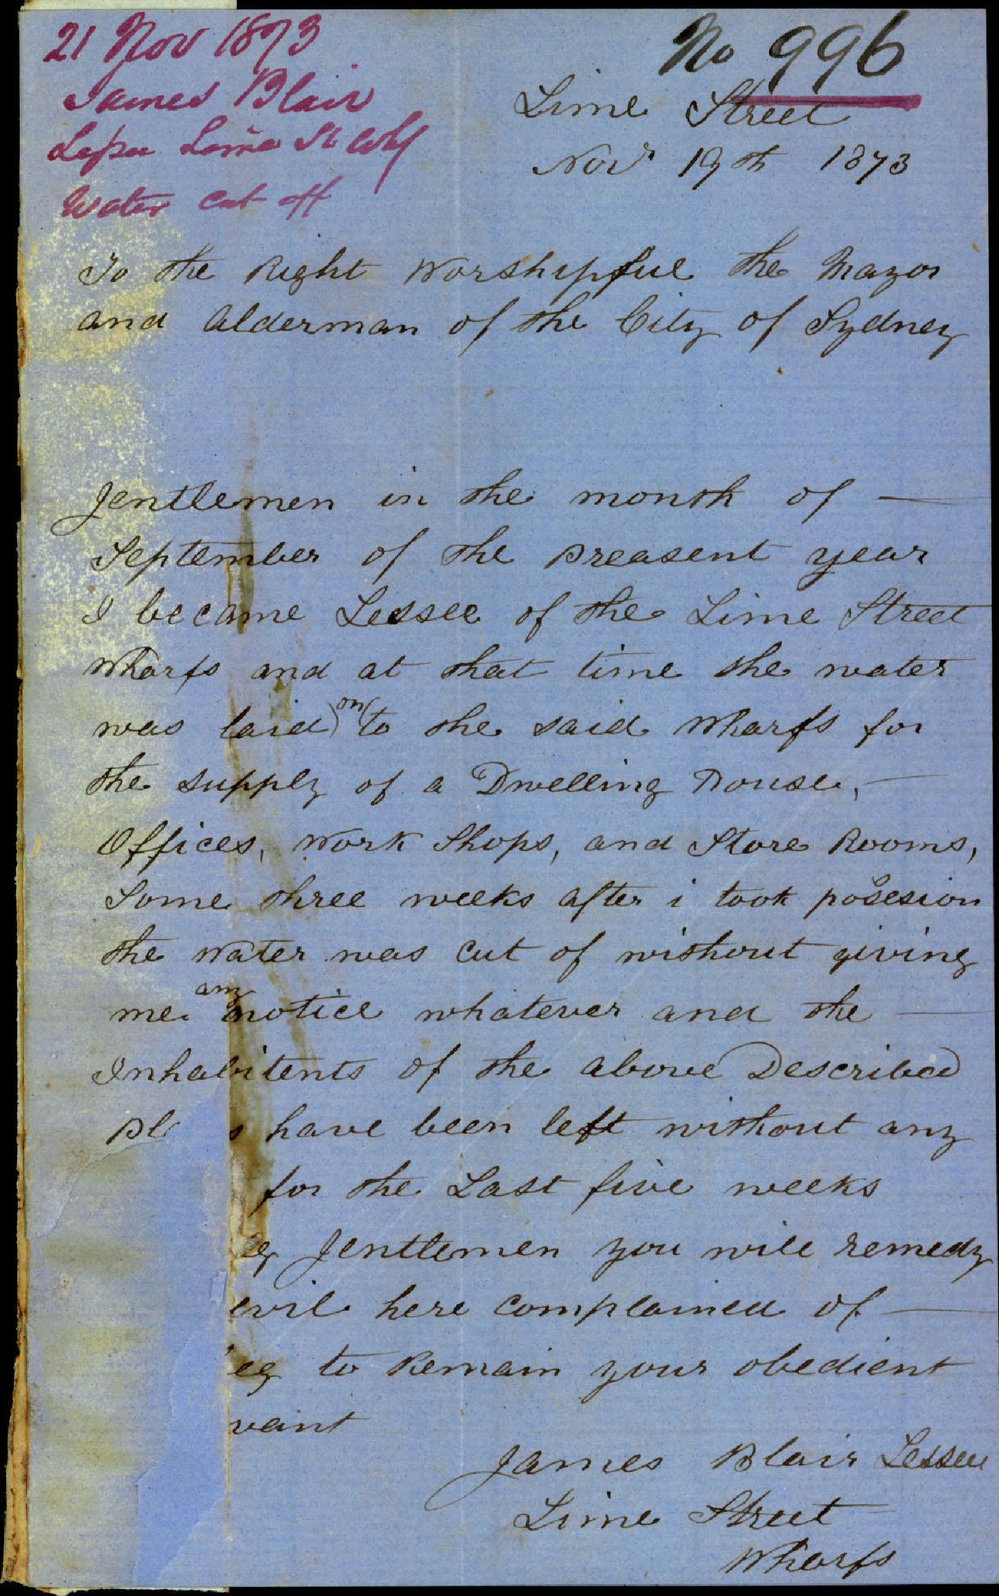 21 Nov 1873
James Blair
Lessee Lime St Whf
Water cut off
No 996
Lime Street
Novr 19th 1873
To the Right Worshipful the Mayor
and Alderman of the City of Sydney
Gentlemen in the month of
September of the preasent year
I became Lessee of the Lime Street
Wharfs and at that time the water
was laid on to the said Wharfs for
the supply of a Dwelling House,
Offices, Work Shops, and Store Rooms,
Some three weeks after i took posesion
the water was cut of without giving
me any notice whatever and the
Inhabitents of the above Described
have been left without any
for the Last five weeks
eg Gentlemen you will remedy
evil here complained of
eg to Remain your obedient
vant
James Blair Lessee
Lime Street
Wharfs